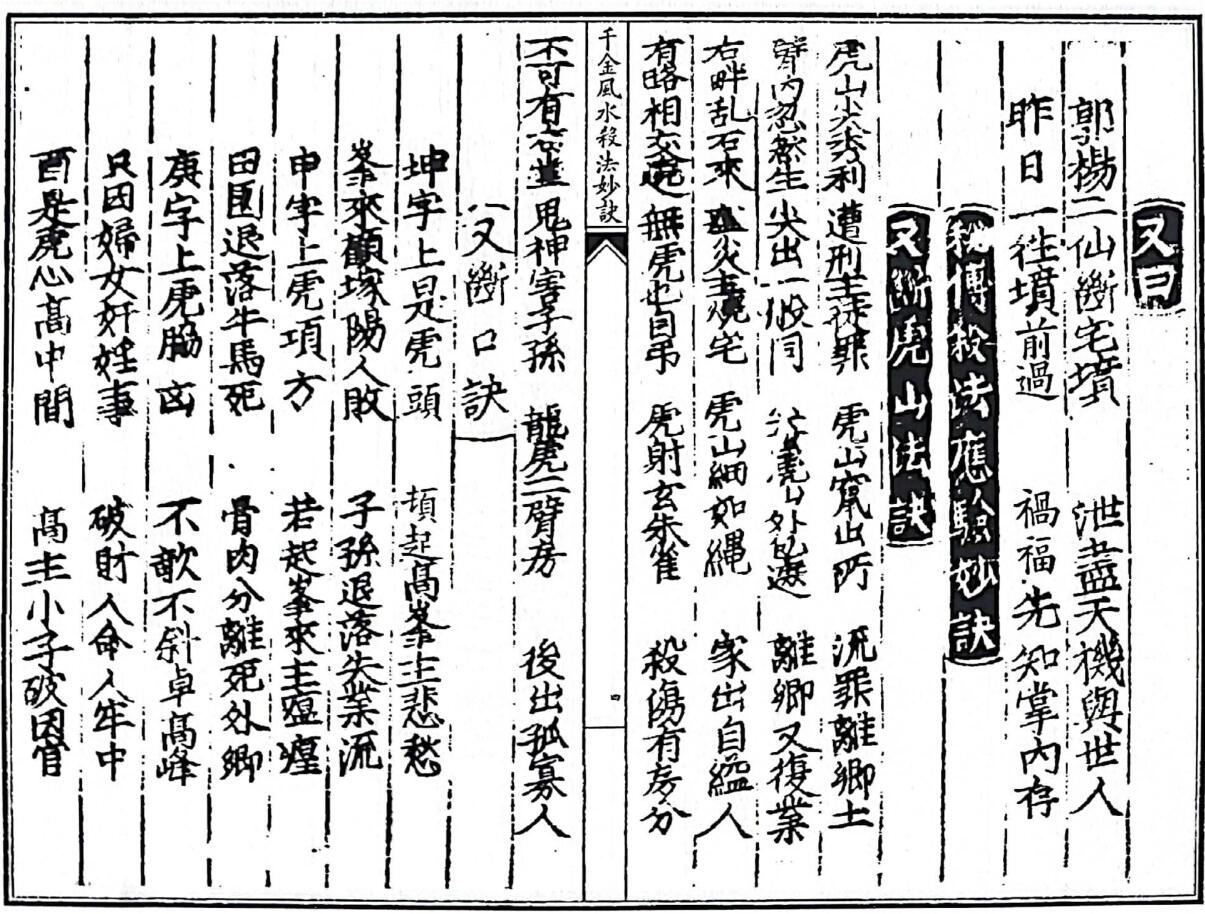 又曰
郭楊二仙斷宅墳 泄盡天機與世人
昨日一往墳前過 禍福先知掌內存
秘傳殺法應驗妙訣
又斷虎山法訣
虎山尖秀利 遭刑主徒罪 虎山窠出阿 流罪離鄉土
臂內忽然生 尖出一般同 離鄉又復業
右畔乱石來 火主燒宅 虎山細如繩 家出自縊人
有路相交 無虎也自吊 虎射玄朱雀 殺傷有房分
千金風水殺法妙訣
不可有 鬼神害子孫 龍虎二臂房 後出孤寡人
又斷口訣
坤字上是虎頭 頓起高峯主悲愁
峯來顧塚陽人敗 子孫退落失業流
申字上虎項方 若起峯來主瘟瘟
田匡退落牛馬死 骨肉分離死外鄉
庚字上虎腦凶 不欹不斜卓高峰
只因婦女奸姙事 破財人命人牢中
酉是虎心高中間 高主小子破因官